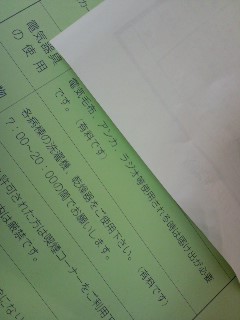 電気器具
の使用
電気毛布、アンカ、ラジオ等使用される時は届け出が必要
です。（有料です）
各病棟の洗濯機、乾燥機をご使用下さい。（有料です）
7：00～20：00の間でお願いします。
許可された方は喫煙コーナーをご利用下
は厳禁です。
物